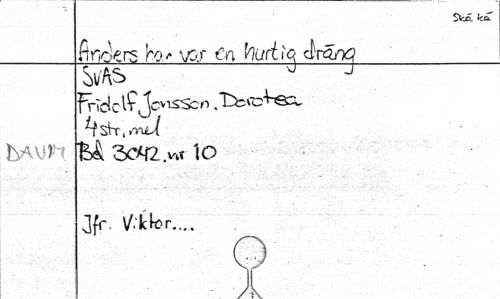 Skä. kä
Anders har var en hurtig dräng
SVAS
Fridolf Jonsson. Dorotea
4 str, mel
DAUM Bd 3042. nr 10
Jfr. Viktor....